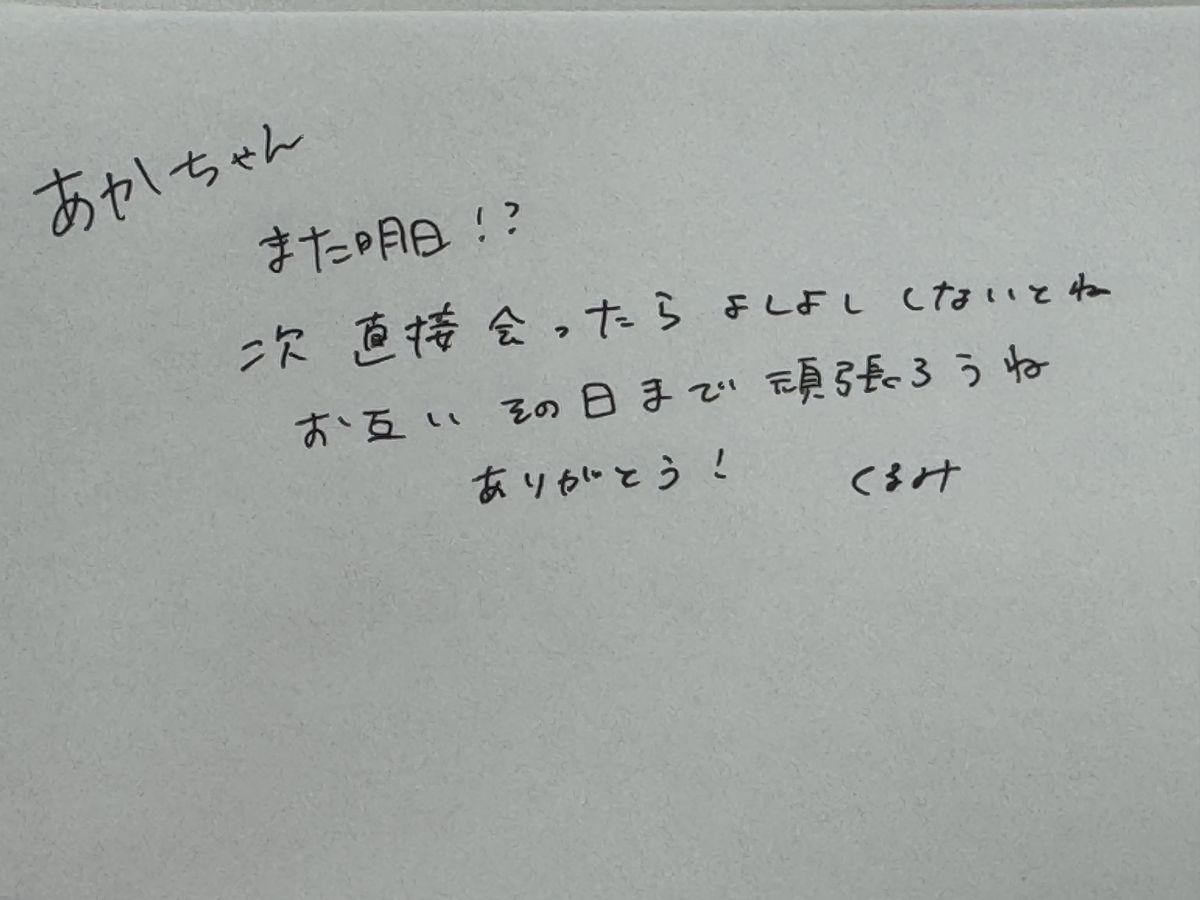 あかちゃん
また明日!?
次 直接会ったら よしよし しないとね
お互い その日まで 頑張ろうね
ありがとう! くるみ